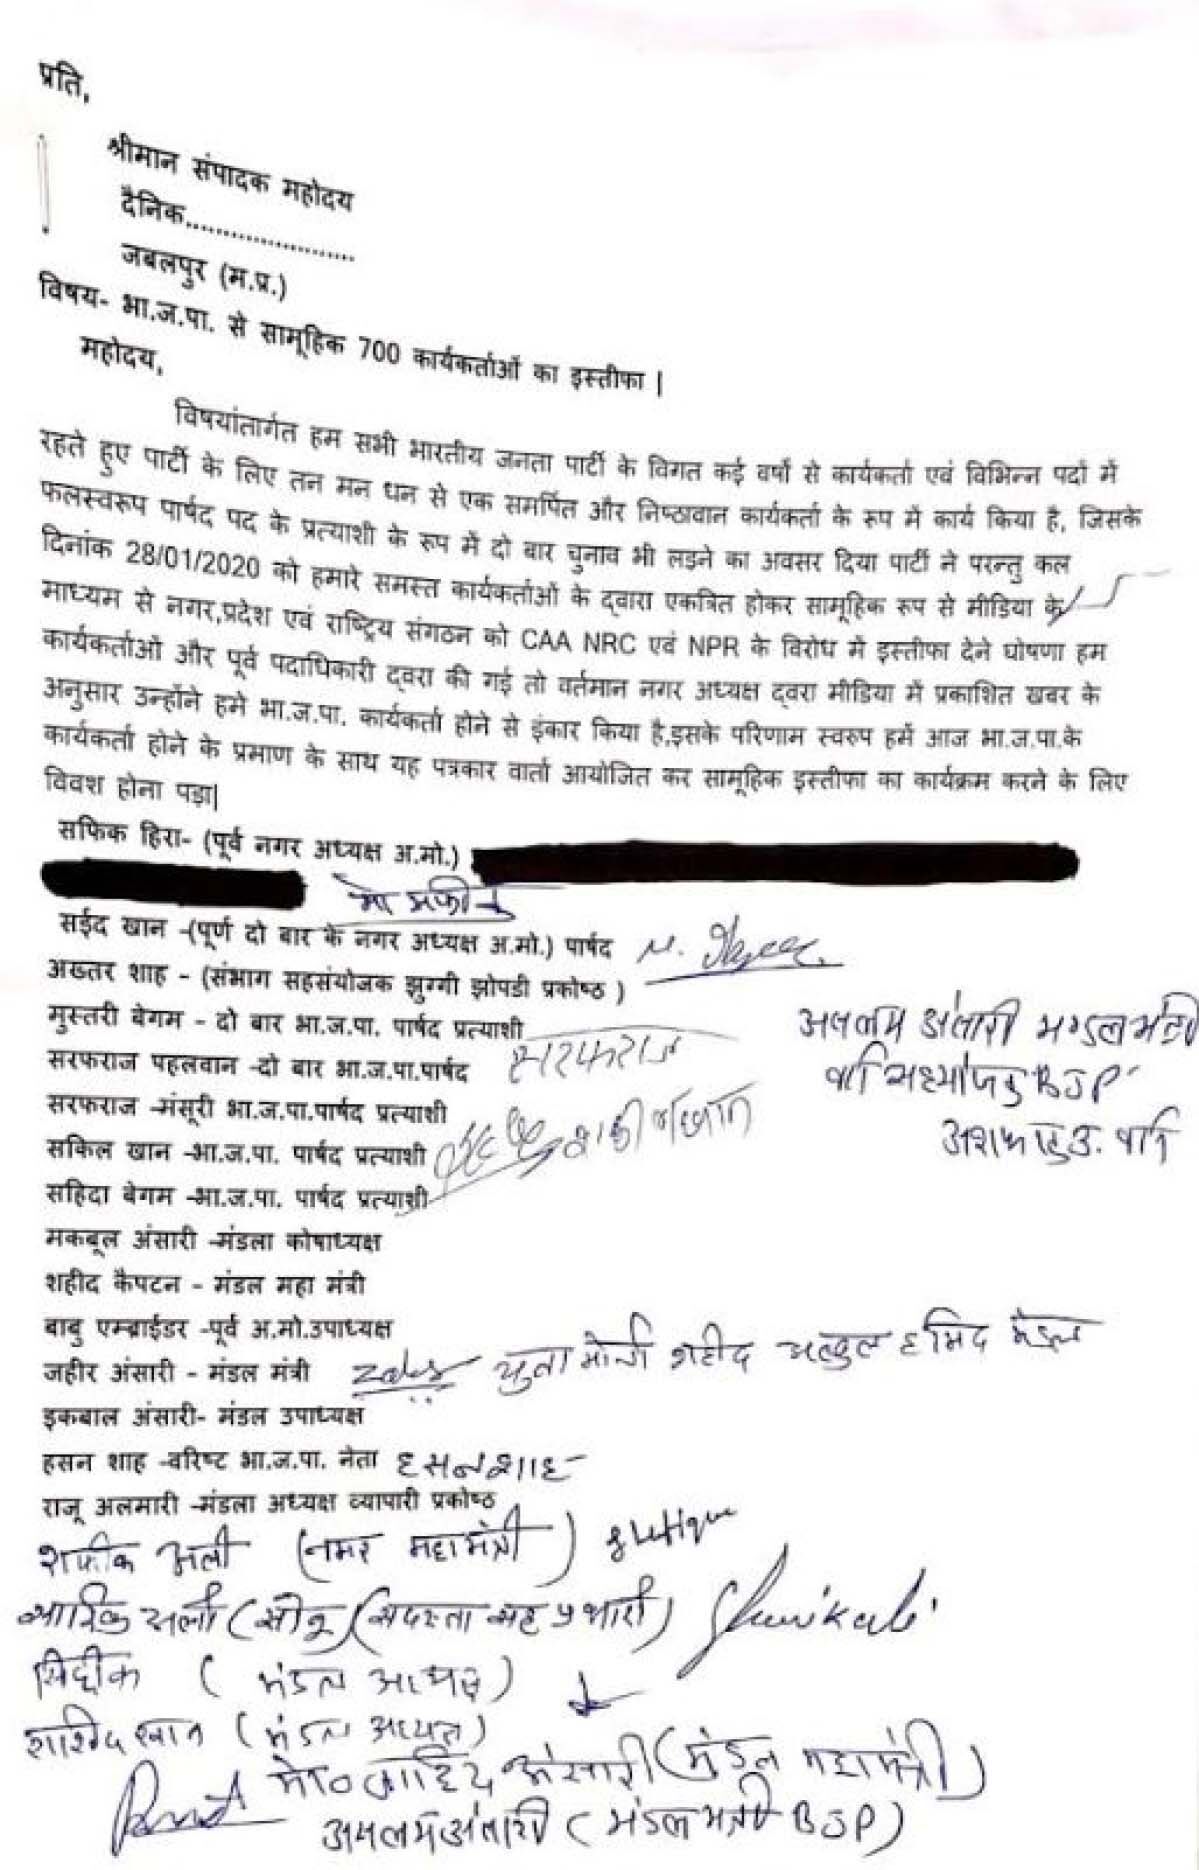 प्रति,
श्रीमान संपादक महोदय
दैनिक.......................
जबलपुर (म.प्र.)
विषय- भा.ज.पा. से सामूहिक 700 कार्यकर्ताओं का इस्तीफा |
महोदय,
विषयांतार्गत हम सभी भारतीय जनता पार्टी के विगत कई वर्षो से कार्यकर्ता एवं विभिन्न पदों में
रहते हुए पार्टी के लिए तन मन धन से एक समर्पित और निष्ठावान कार्यकर्ता के रूप में कार्य किया है, जिसके
फलस्वरूप पार्षद पद के प्रत्याशी के रूप में दो बार चुनाव भी लड़ने का अवसर दिया पार्टी ने परन्तु कल
दिनांक 28/01/2020 को हमारे समस्त कार्यकर्ताओं के द्वारा एकत्रित होकर सामूहिक रूप से मीडिया के
माध्यम से नगर,प्रदेश एवं राष्ट्रिय संगठन को CAA NRC एवं NPR के विरोध में इस्तीफा देने घोषणा हम
कार्यकर्ताओं और पूर्व पदाधिकारी द्वरा की गई तो वर्तमान नगर अध्यक्ष द्वरा मीडिया में प्रकाशित खबर के
अनुसार उन्होंने हमे भा.ज.पा. कार्यकर्ता होने से इंकार किया है,इसके परिणाम स्वरुप हमें आज भा.ज.पा.के
कार्यकर्ता होने के प्रमाण के साथ यह पत्रकार वार्ता आयोजित कर सामूहिक इस्तीफा का कार्यक्रम करने के लिए
विवश होना पड़ा|
सफिक हिरा- (पूर्व नगर अध्यक्ष अ.मो.)
मो सफीक
सईद खान -(पूर्ण दो बार के नगर अध्यक्ष अ.मो.) पार्षद
अख्तर शाह - (संभाग सहसंयोजक झुग्गी झोपडी प्रकोष्ठ )
मुस्तरी बेगम - दो बार भा.ज.पा. पार्षद प्रत्याशी
असलम अंसारी मण्डल मंत्री
सरफराज पहलवान -दो बार भा.ज.पा.पार्षद सरफराज
BJP
सरफराज -मंसूरी भा.ज.पा.पार्षद प्रत्याशी
सकिल खान -भा.ज.पा. पार्षद प्रत्याशी
सहिदा बेगम -भा.ज.पा. पार्षद प्रत्याशी
मकबूल अंसारी -मंडला कोषाध्यक्ष
शहीद कैपटन - मंडल महा मंत्री
बाबु एम्ब्राईडर -पूर्व अ.मो.उपाध्यक्ष
जहीर अंसारी - मंडल मंत्री युवा मोर्चा शहीद अब्दुल हमिद मंडल
इकबाल अंसारी- मंडल उपाध्यक्ष
हसन शाह -वरिष्ट भा.ज.पा. नेता हसन शाह
राजू अलमारी -मंडला अध्यक्ष व्यापारी प्रकोष्ठ
शफीक अली (नगर महामंत्री)
अली (सोनू) (सदस्ता सह प्रभारी)
सिद्दीक (मंडल अध्यक्ष)
खान (मंडल अध्यक्ष)
अंसारी (मंडल महामंत्री)
असलम अंसारी (मंडल मंत्री BJP)